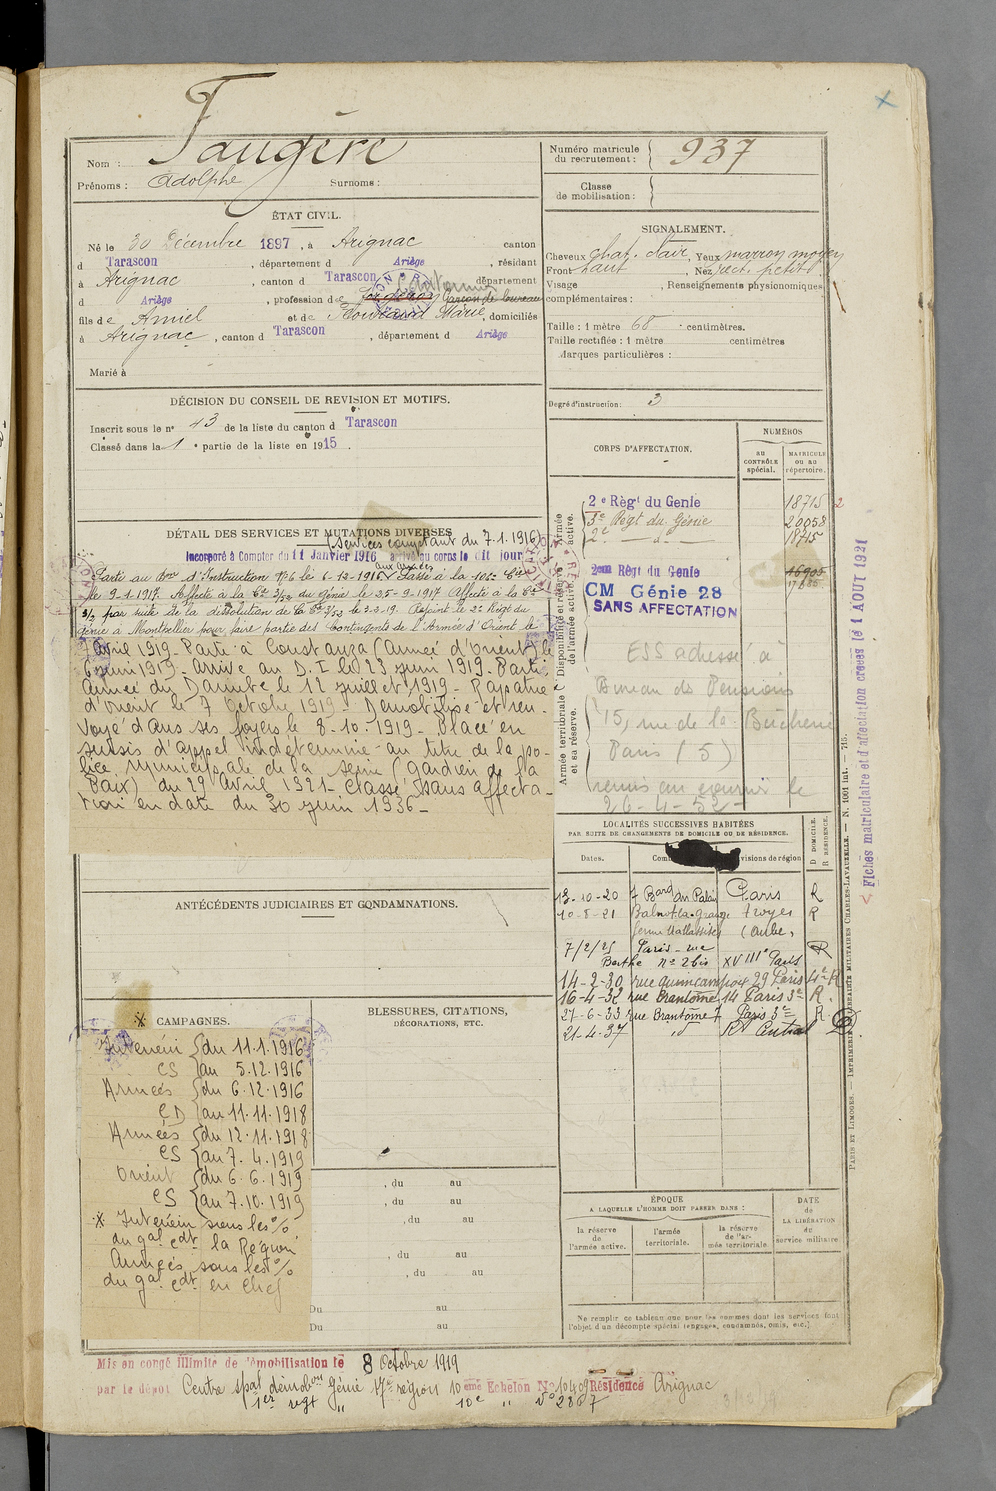 Nom : Faugère
Prénoms : Adolphe Surnoms :
Numéro matricule du recrutement : 937
Classe de mobilisation :
ÉTAT CIVIL.
Né le 30 Décembre 1897, à Arignac, canton
d Tarascon, département d Ariège, résidant
à Arignac, canton d Tarascon département
d Ariège, profession de
fils de Amiel et de Marie, domiciliés
à Arignac, canton d Tarascon, département d Ariège
Marié à
SIGNALEMENT.
Cheveux chat. clair, Yeux marron moyen
Front haut, Nez rect. petit
Visage , Renseignements physionomiques
complémentaires :
Taille : 1 mètre 68 centimètres.
Taille rectifiée : 1 mètre centimètres
Marques particulières :
Degré d'instruction : 3
DÉCISION DU CONSEIL DE REVISION ET MOTIFS.
Inscrit sous le nº 43 de la liste du canton d Tarascon
Classé dans la 1e partie de la liste en 1915.
CORPS D'AFFECTATION.
NUMÉROS
AU CONTRÔLE spécial.
MATRICULE OU AU répertoire.
Armée active.
2e Règt du Genie 18715 2
5e Régt du Génie 20058
2e — dº — 18715
Disponibilité et réserve de l'armée active.
2eme Règt du Genie 16905
CM Génie 28
SANS AFFECTATION
ESS adressé à
Bureau des Pensions
15, rue de la Bûcherie
Paris (5)
remis au courrier le
26-4-52
Armée territoriale et sa réserve.
DÉTAIL DES SERVICES ET MUTATIONS DIVERSES
(Services comptant du 7.1.1916)
Incorporé à Compter du 11 Janvier 1916 arrivé au corps le dit jour
aux armées
Parti au d'Instruction 7/6 le 6-12-1916. Passé à la 106e Cie
le 9-1-1917. Affecté à la Cie 3/53 du génie le 25-9-1917 Affecté à la Cie
3/2 par suite de la dissolution de la Cie 3/53 le 2-2-19. Rejoint le 2e Régt du
génie à Montpellier pour faire partie des Contingents de l'Armée d'Orient le
7 avril 1919. Parti à Constanza (Armée d'orient) le
6 juin 1919. arrivé au D. I le 23 juin 1919. Parti
armée du Danube le 12 juillet 1919. Rapatrié
d'orient le 7 octobre 1919. Démobilisé et ren-
voyé dans ses foyers le 8.10.1919. Placé en
sursis d'appel indéterminé au titre de la po-
lice municipale de la Seine (gardien de la
Paix) du 29 avril 1921. Classé sans affecta-
tion en date du 30 juin 1936.
LOCALITÉS SUCCESSIVES HABITÉES
PAR SUITE DE CHANGEMENTS DE DOMICILE OU DE RÉSIDENCE.
Dates. Com visions de région
D DOMICILE. R RÉSIDENCE.
13-10-20 7 Bard du Palais Paris R
10-5-21 Balnot-la-grange troyes R
ferme (Aube)
7/2/25 Paris - rue R
Berthe nº 2bis XVIIIe Paris
14-2-30 rue quincampoix 29 Paris 4e R
16-4-32 rue Brantôme 14 Paris 3e R.
27-6-33 rue Brantôme 7 Paris 3e R
21-4-37 id Rt Central D
ANTÉCÉDENTS JUDICIAIRES ET CONDAMNATIONS.
* CAMPAGNES.
Intérieur du 11.1.1916
CS au 5.12.1916
Armées du 6.12.1916
CD au 11.11.1918
Armées du 12.11.1918
CS au 7.4.1919
Orient du 6.6.1919
CS au 7.10.1919
* Intérieur sous les %
du gal cdt la Région
Armées sous les %
du gal cdt en Chef
BLESSURES, CITATIONS,
DÉCORATIONS, ETC.
, du au
, du au
, du au
, du au
, du au
Du au
Du au
ÉPOQUE
A LAQUELLE L'HOMME DOIT PASSER DANS :
la réserve de l'armée active.
l'armée territoriale.
la réserve de l'armée territoriale
DATE de LA LIBÉRATION du service militaire
Ne remplir ce tableau que pour les hommes dont les services font
l'objet d'un décompte spécial (engagés, condamnés, omis, etc.)
Mis en congé illimité de démobilisation le 8 Octobre 1919
par le dépôt Centre spal démobon Génie 17e région 10eme Echelon No 10409 Résidence Arignac
1er regt " 10e " No 2887
PARIS ET LIMOGES. — IMPRIMERIE LIBRAIRIE MILITAIRES CHARLES-LAVAUZELLE. — N. 1001 int. — 715.
Fiches matriculaire et d'affectation créées le 1 AOUT 1921